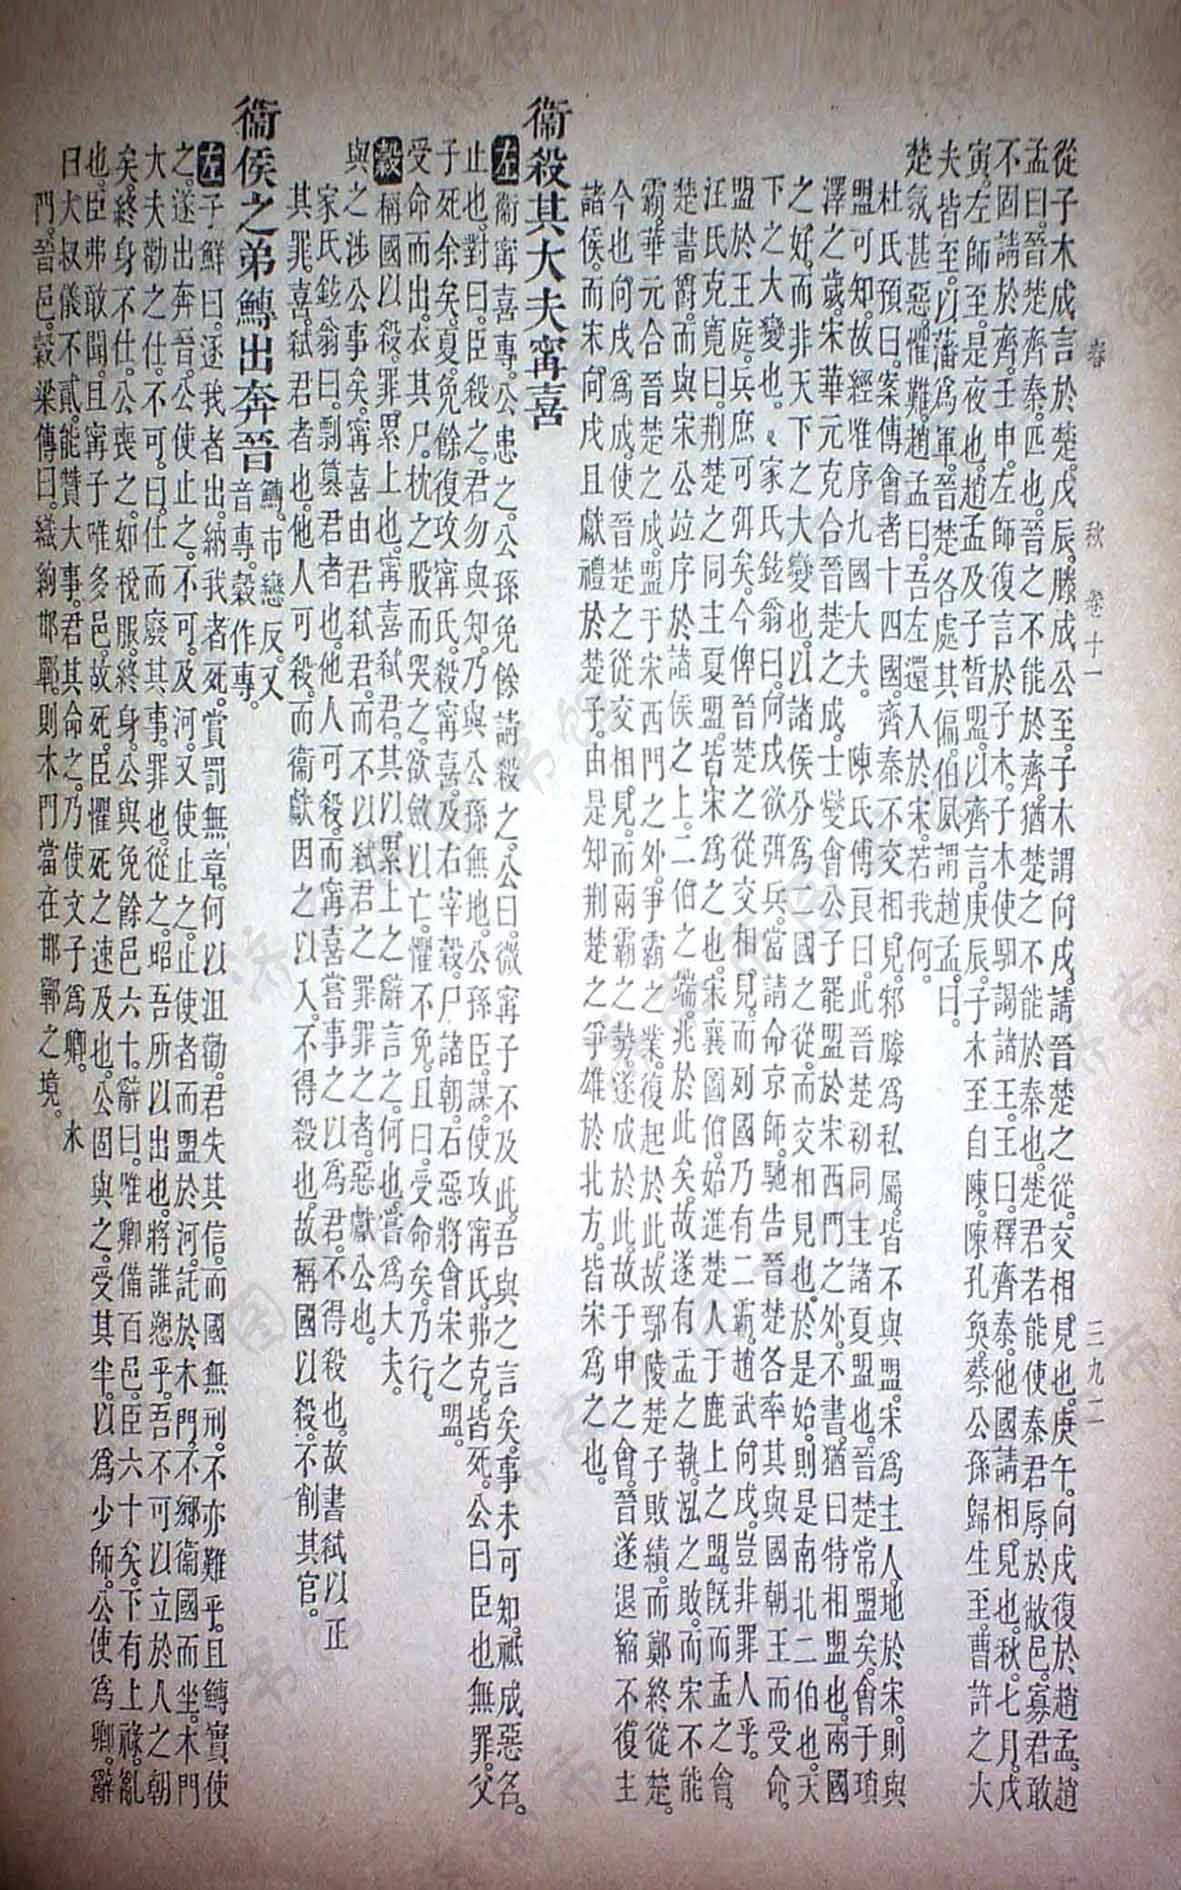 春　秋　卷十一　三九二
從子木成言於楚。戊辰。滕成公至。子木謂向戌。請晉楚之從。交相見也。庚午。向戌復於趙孟。趙
孟曰。晉楚齊秦。匹也。晉之不能於齊。猶楚之不能於秦也。楚君若能使秦君辱於敝邑。寡君敢
不固請於齊。壬申。左師復言於子木。子木使馹謁諸王。王曰。釋齊秦。他國請相見也。秋。七月。戊
寅。左師至。是夜也。趙孟及子皙盟。以齊言。庚辰。子木至自陳。陳孔奐蔡公孫歸生至。曹許之大
夫皆至。以藩爲軍。晉楚各處其偏。伯夙謂趙孟。曰。
楚氛甚惡。懼難。趙孟曰。吾左還入於宋。若我何。
杜氏預曰。案傳會者十四國。齊秦不交相見。邾滕爲私屬。皆不與盟。宋爲主人。地於宋。則與
盟可知。故經唯序九國大夫。　陳氏傅良曰。此晉楚初同主諸夏盟也。晉楚常盟矣。會于瑣
澤之歲。宋華元克合晉楚之成。士燮會公子罷盟於宋西門之外。不書。猶曰特相盟也。兩國
之好。而非天下之大變也。以諸侯分爲二國之從。而交相見也。於是始。則是南北二伯也。天
下之大變也。　家氏鉉翁曰。向戌欲弭兵。當請命京師。馳告晉楚。各率其與國朝王而受命。
盟於王庭。兵庶可弭矣。今俾晉楚之從交相見。而列國乃有二霸。趙武向戌。豈非罪人乎。
汪氏克寬曰。荆楚之同主夏盟。皆宋爲之也。宋襄圖伯。始進楚人于鹿上之盟。旣而盂之會。
楚書爵。而與宋公竝序於諸侯之上。二伯之端。兆於此矣。故遂有盂之執。泓之敗。而宋不能
霸。華元合晉楚之成。盟于宋西門之外。爭霸之業。復起於此。故鄢陵楚子敗績。而鄭終從楚。
今也向戌爲成。使晉楚之從交相見。而兩霸之勢。遂成於此。故于申之會。晉遂退縮不復主
諸侯。而宋向戌且獻禮於楚子。由是知荆楚之爭雄於北方。皆宋爲之也。
衞殺其大夫甯喜
左衞甯喜專。公患之。公孫免餘請殺之。公曰。微甯子不及此。吾與之言矣。事未可知。祇成惡名。
止也。對曰。臣殺之。君勿與知。乃與公孫無地。公孫臣。謀。使攻甯氏。弗克。皆死。公曰。臣也無罪。父
子死余矣。夏。免餘復攻甯氏。殺甯喜。及右宰穀。尸諸朝。石惡將會宋之盟。
受命而出。衣其尸。枕之股而哭之。欲斂以亡。懼不免。且曰。受命矣。乃行。
穀稱國以殺。罪累上也。甯喜弒君。其以累上之辭言之。何也。嘗爲大夫。
與之涉公事矣。甯喜由君弒君。而不以弒君之罪罪之者。惡獻公也。
家氏鉉翁曰。剽簒君者也。他人可殺。而甯喜嘗事之以爲君。不得殺也。故書弒以正
其罪。喜。弒君者也。他人可殺。而衞獻因之以入。不得殺也。故稱國以殺。不削其官。
衞侯之弟鱄出奔晉
鱄。市戀反。又
音專。穀作專。
左子鮮曰。逐我者出。納我者死。賞罰無章。何以沮勸。君失其信。而國無刑。不亦難乎。且鱄實使
之。遂出奔晉。公使止之。不可。及河。又使止之。止使者而盟於河。託於木門。不鄉衞國而坐。木門
大夫勸之仕。不可。曰。仕而廢其事。罪也。從之。昭吾所以出也。將誰愬乎。吾不可以立於人之朝
矣。終身不仕。公喪之。如稅服。終身。公與免餘邑六十。辭曰。唯卿備百邑。臣六十矣。下有上祿。亂
也。臣弗敢聞。且甯子唯多邑。故死。臣懼死之速及也。公固與之。受其半。以爲少師。公使爲卿。辭
曰。大叔儀不貳。能贊大事。君其命之。乃使文子爲卿。木
門。晉邑。穀梁傳曰。織絇邯鄲。則木門當在邯鄲之境。